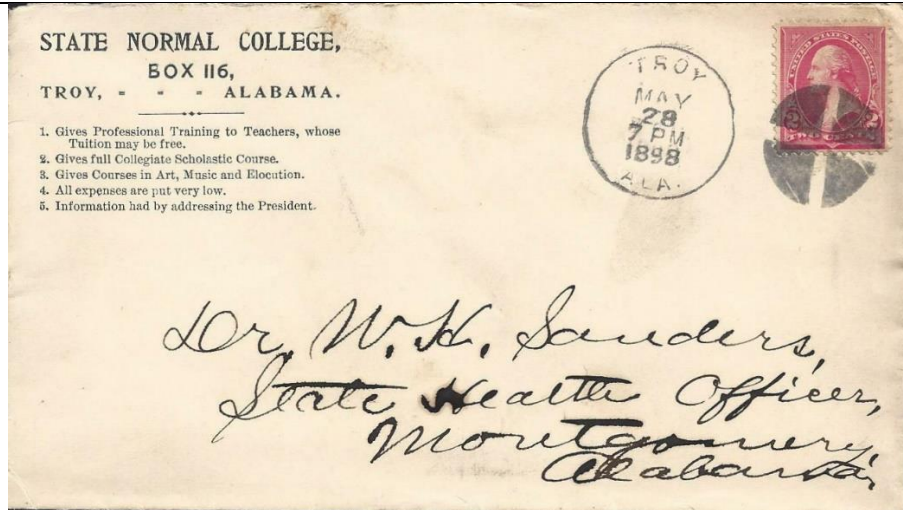 STATE NORMAL COLLEGE,
BOX 116,
TROY, - - - ALABAMA.
1. Gives Professional Training to Teachers, whose
Tuition may be free.
2. Gives full Collegiate Scholastic Course.
3. Gives Courses in Art, Music and Elocution.
4. All expenses are put very low.
5. Information had by addressing the President.
TROY
MAY
28
7 PM
1898
ALA.
UNITED STATES POSTAGE
2 2
TWO CENTS
Dr. W. H. Sanders,
State Health Officer,
Montgomery,
Alabama,